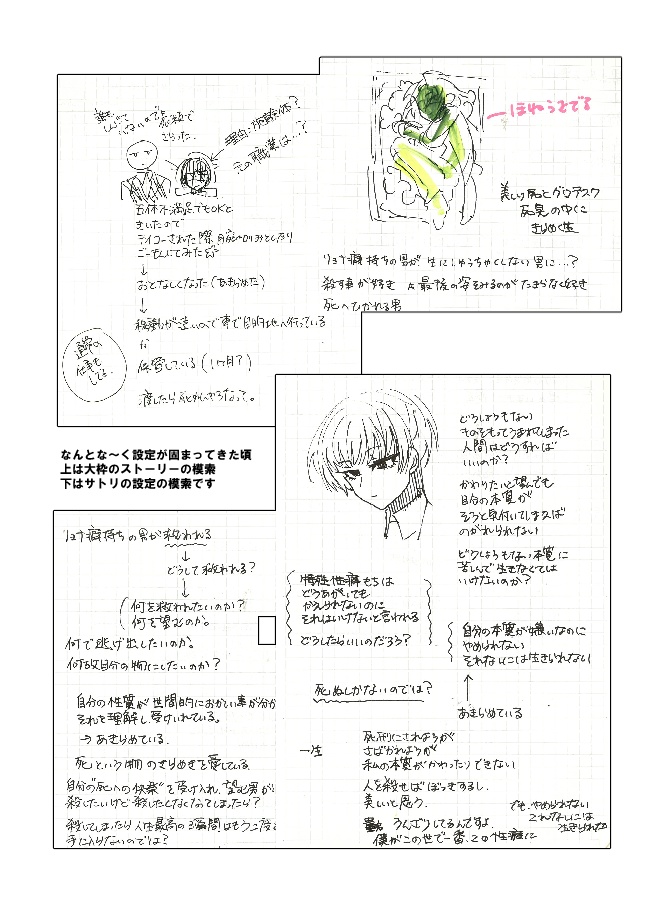 さらった。
理由:
元の職業は…?
五体不満足でもOKと
きいたので
↓
おとなしくなった(あきらめた)
↓
移動が遠いので車で目的地へ行っている
保管している(1ヶ月?)
通常の
仕事も
してる。
美しい死とグロテスク
死臭の中に
きらめく生
リョナ癖持ちの男が生にしゅうちゃくしない男に…?
殺す事が好き 最後の姿をみるのがたまらなく好き
死へひかれる男
なんとな~く設定が固まってきた頃
上は大枠のストーリーの模索
下はサトリの設定の模索です
どうしようもない
ものをもってうまれてしまった
人間はどうすれば
いいのか?
かわりたいと望んでも
自分の本質が
そうと気付いてしまえば
のがれられない
どうしようもない本質に
苦しんで生きなくては
いけないのか?
特殊性癖もちは
どうあがいても
かえられないのに
それはいけないと言われる
どうしたらいいのだろう?
自分の本質が嫌いなのに
やめられない
それなしには生きられない
↑
あきらめている
死ぬしかないのでは?
リョナ癖持ちの男が救われる
↓
どうして救われる?
↓
(何を救われたいのか?
何を望むのか。
何で逃げ出したいのか。
何故自分の物にしたいのか?
自分の性質が世間的におかしい事が分か
それを理解し受けいれている。
→あきらめている。
死という間のきらめきを愛している。
自分の"死への快楽"を受け入れ、望む男が
殺したいけど殺したくなくなってしまったら?
殺してしまったら人生最高の瞬間はもう二度と
手に入らないのでは?
一生
死刑にされようが
さばかれようが
私の本質がかわったりできない
人を殺せばぼっきするし、
美しいと思う。
うんざりしてるんですよ。
僕がこの世で一番、この性癖に
でも、やめられない
これなしには
生きられない